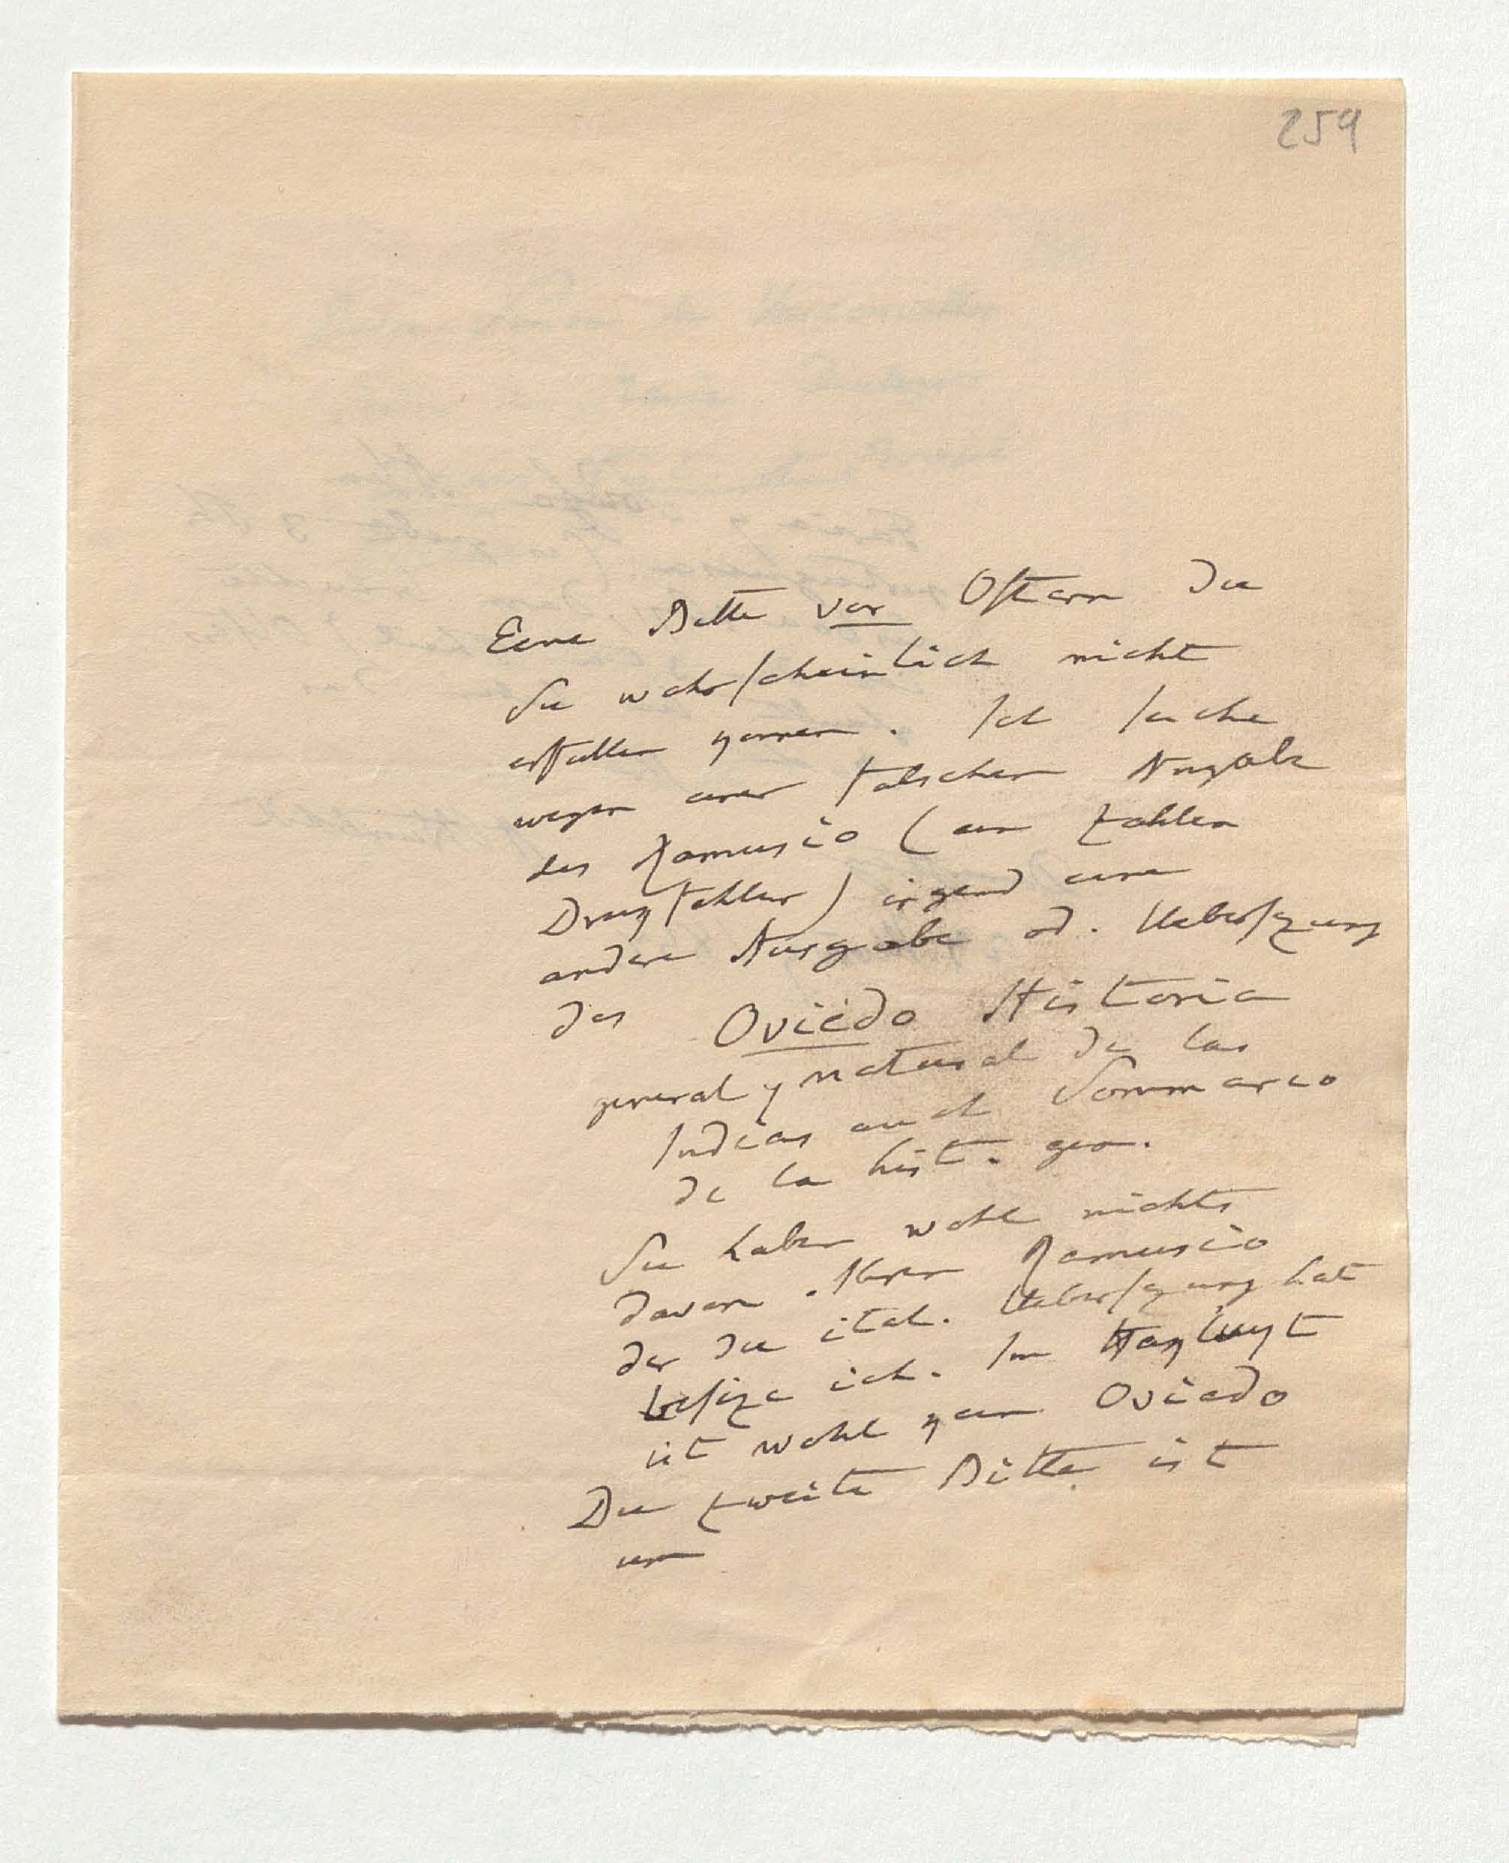 259
Eine Bitte vor Ostern die
Sie wahrscheinlich nicht
erfüllen können. Ich suche
wegen einer falschen Angabe
des Ramusio (ein Zahlen
Drukfehler) irgend eine
andere Ausgabe od. Uebersezung
des Oviedo Historia
general y natural de las
Indias auch Sommario
de la hist. gen.
Sie haben wohl nichts
davon. Ihren Ramusio
der die ital. Uebersezung hat
besize ich. Im Hakluyt
ist wohl kein Oviedo
Die zweite Bitte ist
um